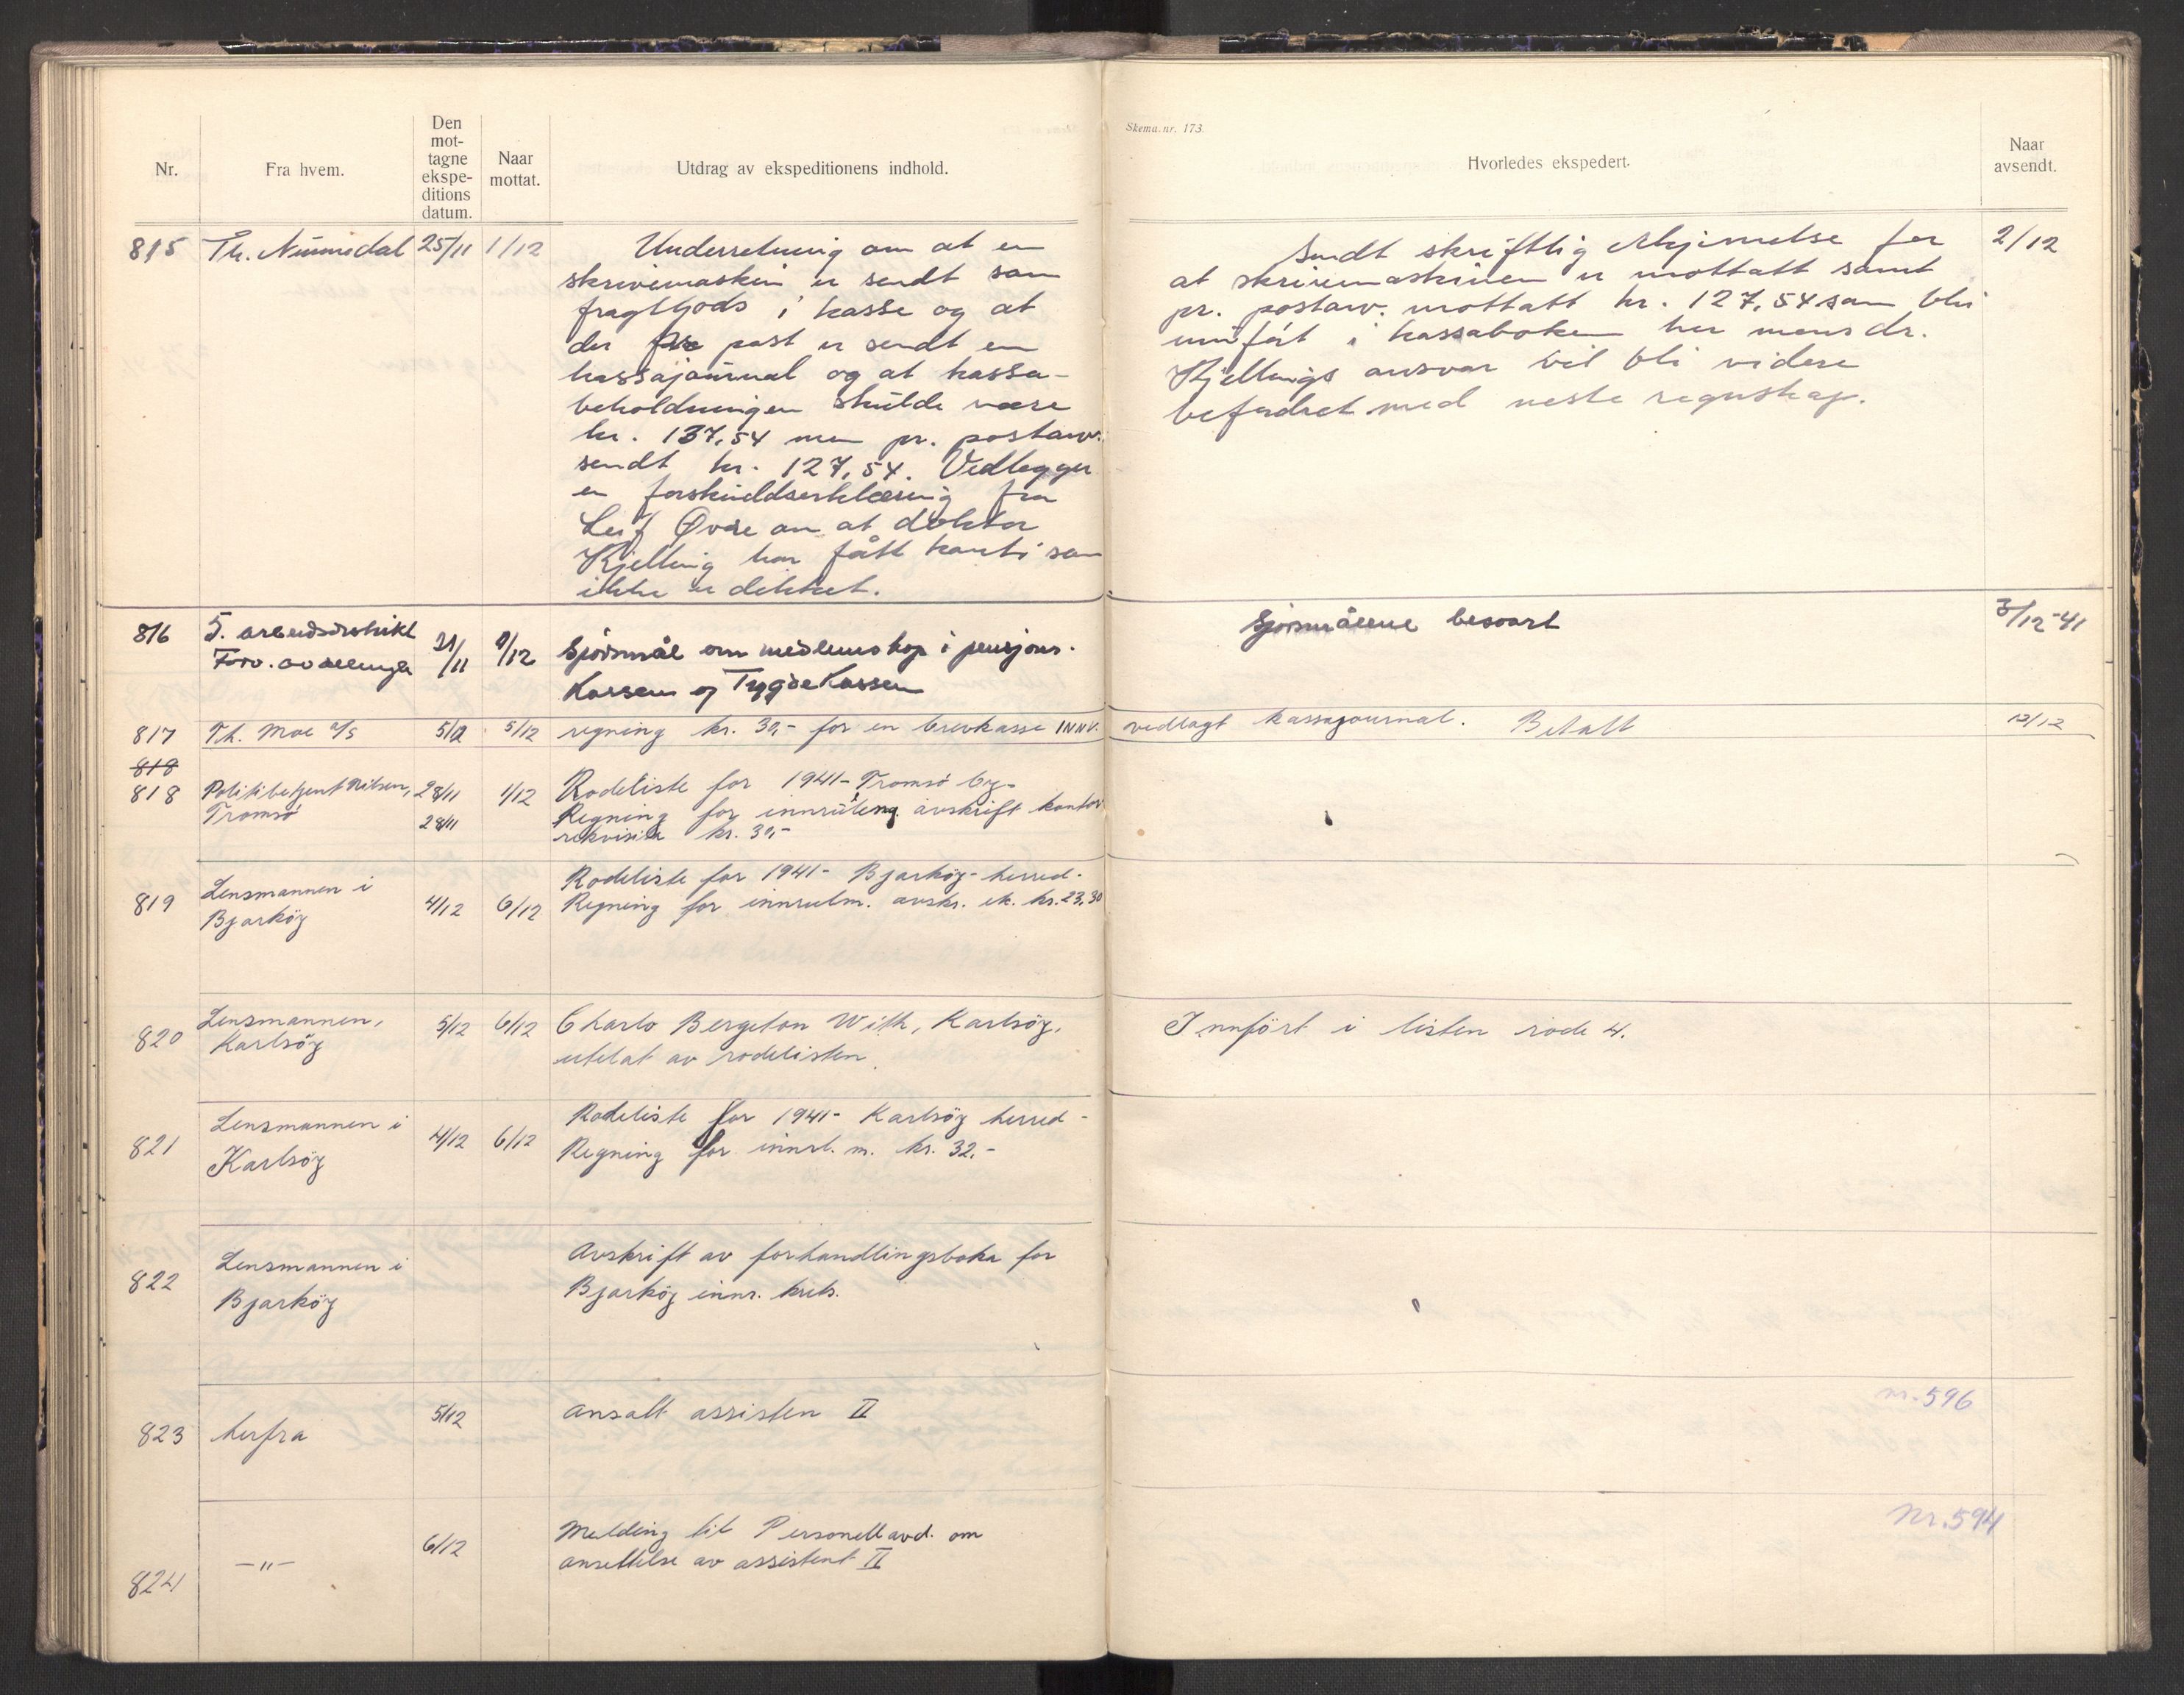 Skema.nr. 173.
Nr.
Fra hvem.
Den mot-tagne ekspe-ditions datum.
Naar mottat.
Utdrag av ekspeditionens indhold.
Hvorledes ekspedert.
Naar avsendt.
815 Th. Nummedal 25/11 1/12 Underretning om at en
skrivemaskin er sendt som
fragtgods i kasse og at
der pr post er sendt en
kassajournal og at kassa-
beholdningen skulde være
kr. 137,54 men pr. postanv.
sendt kr. 127,54. Vedlegger
en forskuddserklæring fra
Leif Øvre om at doktor
Kjelling har fått konti som
ikke er dekket.
Sendt skriftlig erkjennelse for 2/12
at skrivemaskinen er mottatt samt
pr. postanv. mottatt kr. 127,54 som blir
innført i kassaboken her mens dr.
Kjellings ansvar vil bli videre
befordret med neste regnskap.
816 5. arbeidsdistrikt
Forv. avdelinga 21/11 1/12 Spörsmål om medlemskap i pensjons-
kassen og Trygdekassen
Spörsmålene besvart 3/12-41
817 Th. Moe a/s 5/12 5/12 regning kr. 30,- for en brevkasse INNV. vedlagt kassajournal. Betalt 12/12
818
818 Politibetjent Nilsen, 28/11 1/12 Rodeliste for 1941 - Tromsö by-
Tromsö 28/11 Regning for innrulleng avskrift kontor
rekvisita kr. 30,-
819 Lensmannen i
Bjarköy 4/12 6/12 Rodeliste for 1941- Bjarköy-herred-
Regning for innrulm. avskr. ek. kr. 23,30
820 Lensmannen,
Karlsöy 5/12 6/12 Charlo Bergeton With, Karlsöy,
utelat av rodelisten.
Innfört i listen rode 4.
821 Lensmannen i
Karlsöy 4/12 6/12 Rodeliste for 1941- Karlsöy herred-
Regning for innrl. m. kr. 32.-
822 Lensmannen i
Bjarköy Avskrift av forhandlingsboka for
Bjarköy innr. krets.
823 herfra 5/12 Ansatt assisten II nr. 596
824 -"- 6/12 Melding til Personellavd. om
ansettelse av assistent II
Nr. 594